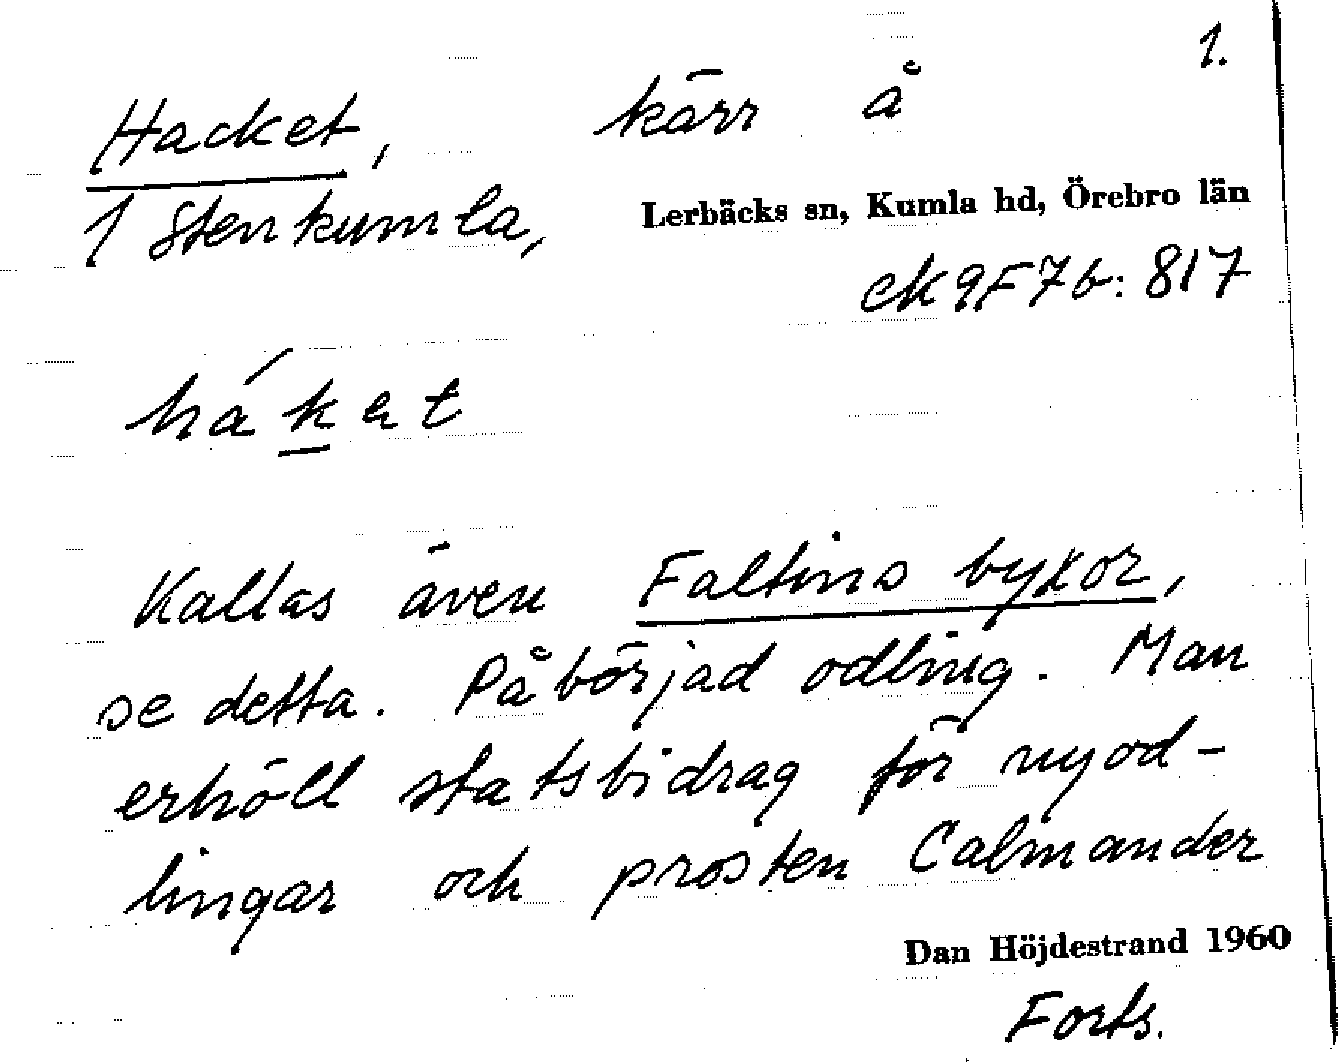 1.
Hacket, kärr å
1 Stenkumla, Lerbäcks sn, Kumla hd, Örebro län
ek 9F7b: 817
háket
Kallas även Faltins bykor,
se detta. Påbörjad odling. Man
erhöll statsbidrag för nyod-
lingar och prosten Calmander
Dan Höjdestrand 1960
Forts.